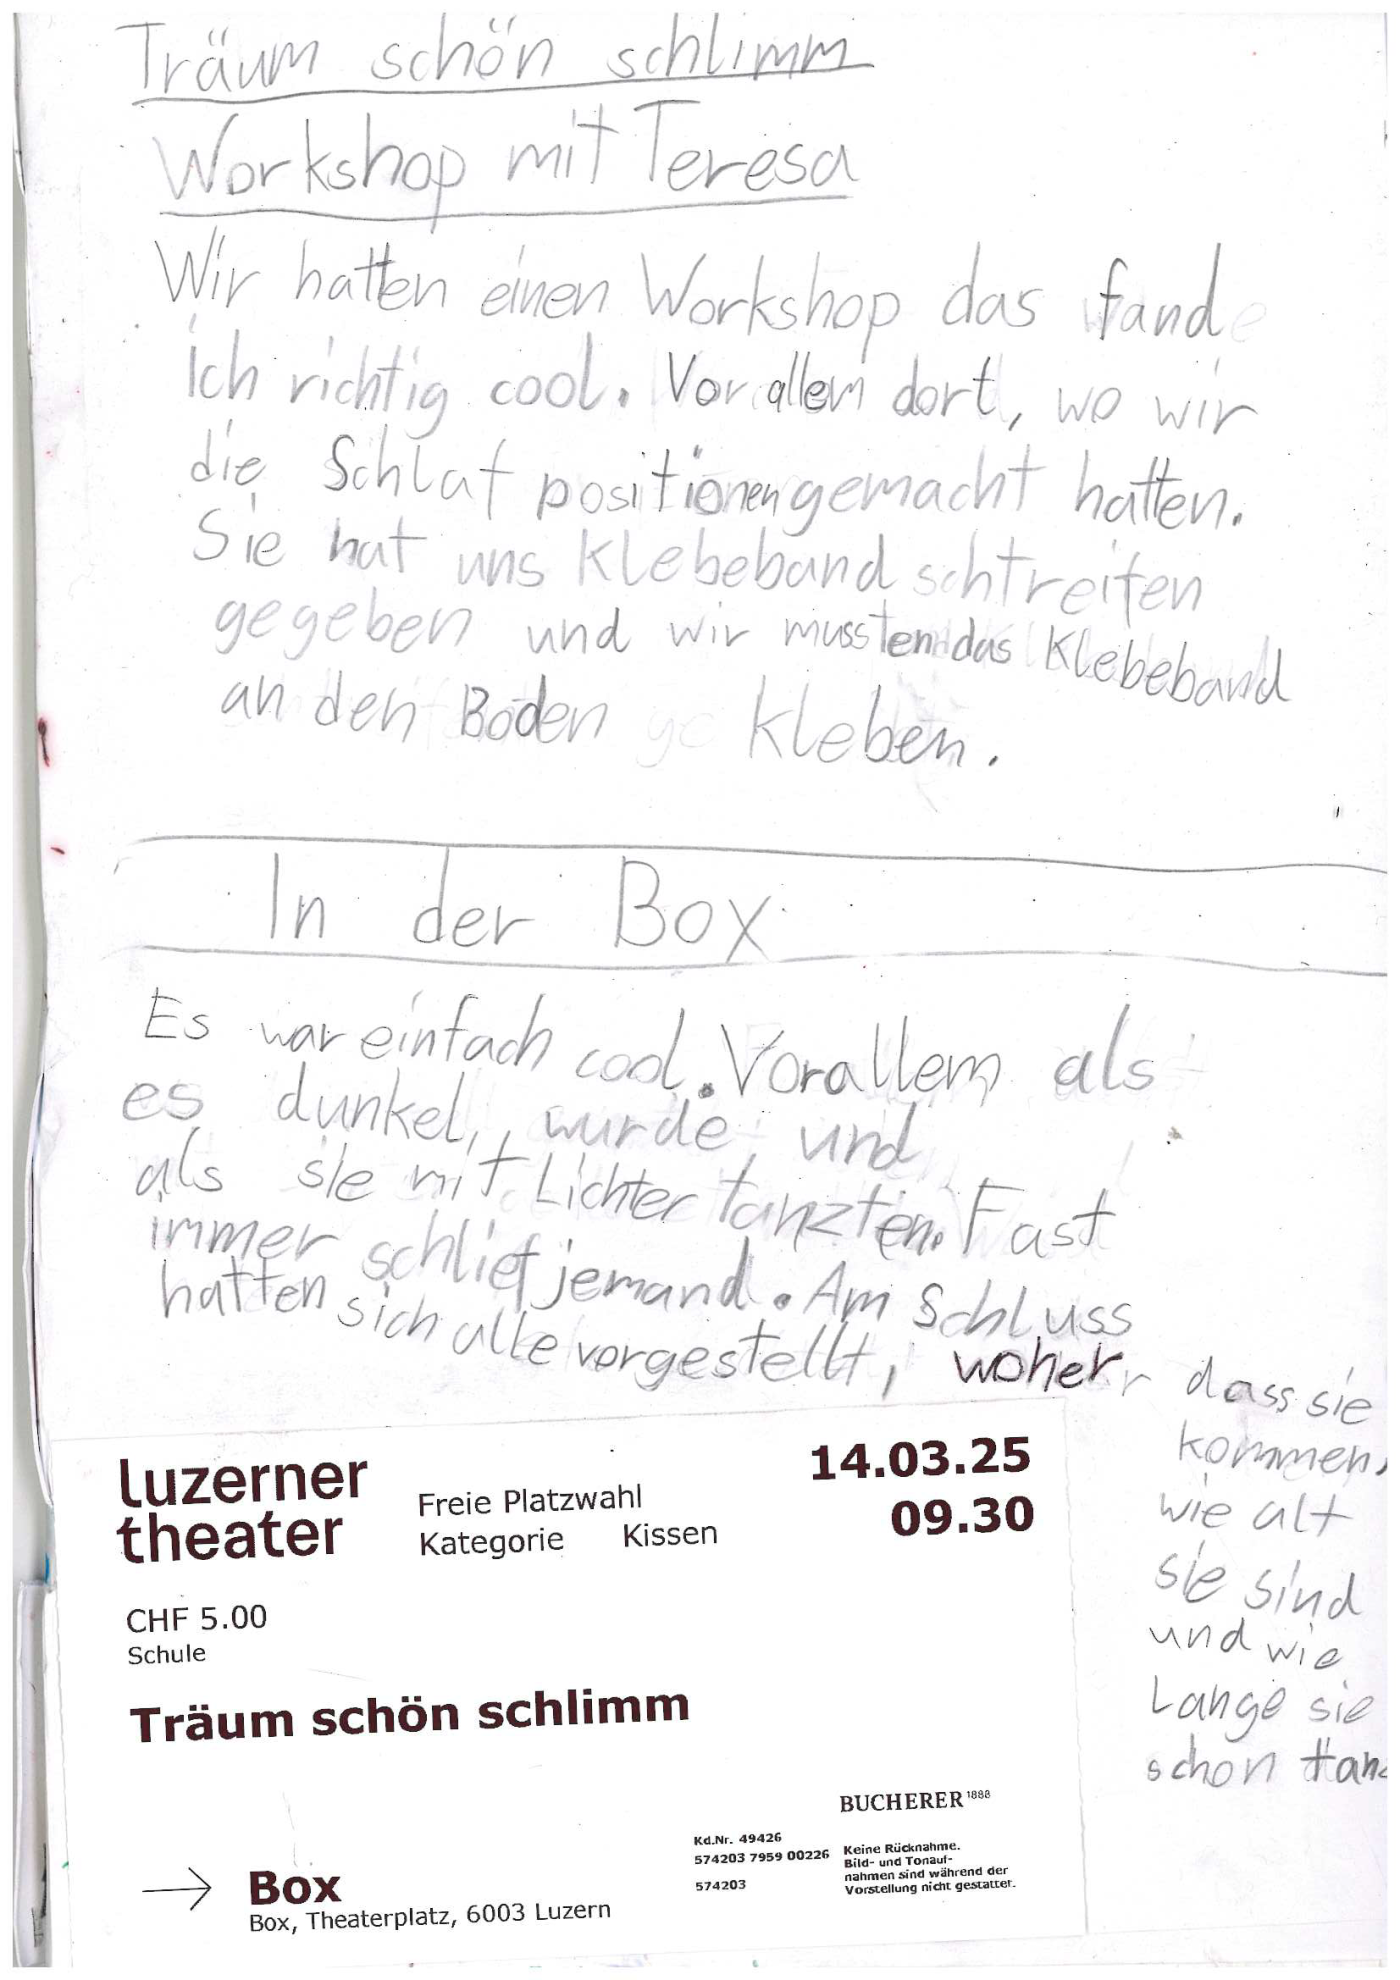 Träum schön schlimm
Workshop mit Teresa
Wir hatten einen Workshop das fand
ich richtig cool. Vor allem dort, wo wir
die Schlaf positionen gemacht hatten.
Sie hat uns Klebeband schtreifen
gegeben und wir mussten das Klebeband
an den Boden kleben.
In der Box
Es war einfach cool. Vorallem als
es dunkel, wurde und
als sie mit Lichter tanzten. Fast
immer schlief jemand. Am Schluss
hatten sich alle vorgestellt, woher dass sie
kommen,
wie alt
sie sind
und wie
Lange sie
schon
luzerner
theater
Freie Platzwahl
Kategorie Kissen
14.03.25
09.30
CHF 5.00
Schule
Träum schön schlimm
BUCHERER 1888
Kd.Nr. 49426
574203 7959 00226
574203
Keine Rücknahme.
Bild- und Tonauf-
nahmen sind während der
Vorstellung nicht gestattet.
→ Box
Box, Theaterplatz, 6003 Luzern